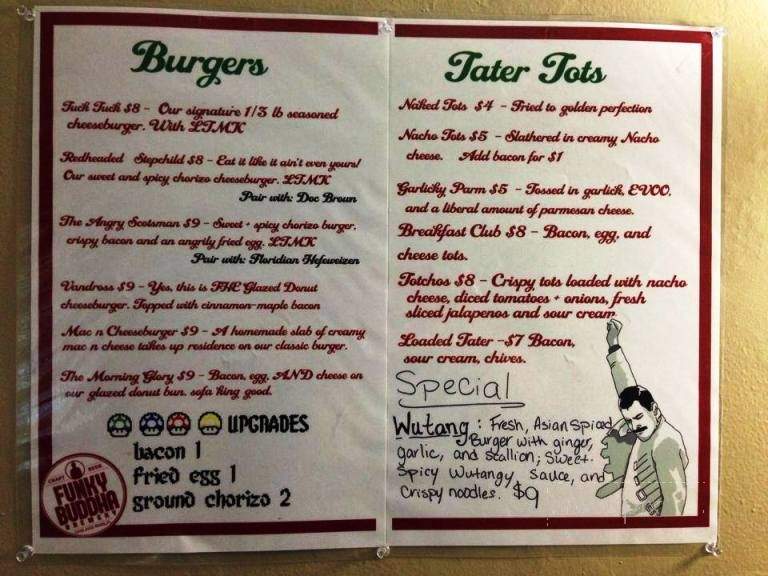 Burgers
Tuck Tuck $8 - Our signature 1/3 lb seasoned
cheeseburger. With LTMK
Redheaded Stepchild $8 - Eat it like it ain't even yours!
Our sweet and spicy chorizo cheeseburger. LTMK
Pair with: Doc Brown
The Angry Scotsman $9 - Sweet + spicy chorizo burger,
crispy bacon and an angrily fried egg. LTMK
Pair with: Floridian Hefeweizen
Vandross $9 - Yes, this is THE Glazed Donut
cheeseburger. Topped with cinnamon-maple bacon
Mac n Cheeseburger $9 - A homemade slab of creamy
mac n cheese takes up residence on our classic burger.
The Morning Glory $9 - Bacon, egg, AND cheese on
our glazed donut bun. sofa king good.
UPGRADES
bacon 1
fried egg 1
ground chorizo 2
CRAFT BEER
FUNKY
BUDDHA
BREWERY
Tater Tots
Naked Tots $4 - Fried to golden perfection
Nacho Tots $5 - Slathered in creamy Nacho
cheese. Add bacon for $1
Garlicky Parm $5 - Tossed in garlick, EVOO,
and a liberal amount of parmesan cheese.
Breakfast Club $8 - Bacon, egg, and
cheese tots.
Totchos $8 - Crispy tots loaded with nacho
cheese, diced tomatoes + onions, fresh
sliced jalapenos and sour cream
Loaded Tater -$7 Bacon,
sour cream, chives.
Special
Wutang : Fresh, Asian Spiced
Burger with ginger,
garlic, and scallion; Sweet-
Spicy Wutangy Sauce, and
Crispy noodles. $9